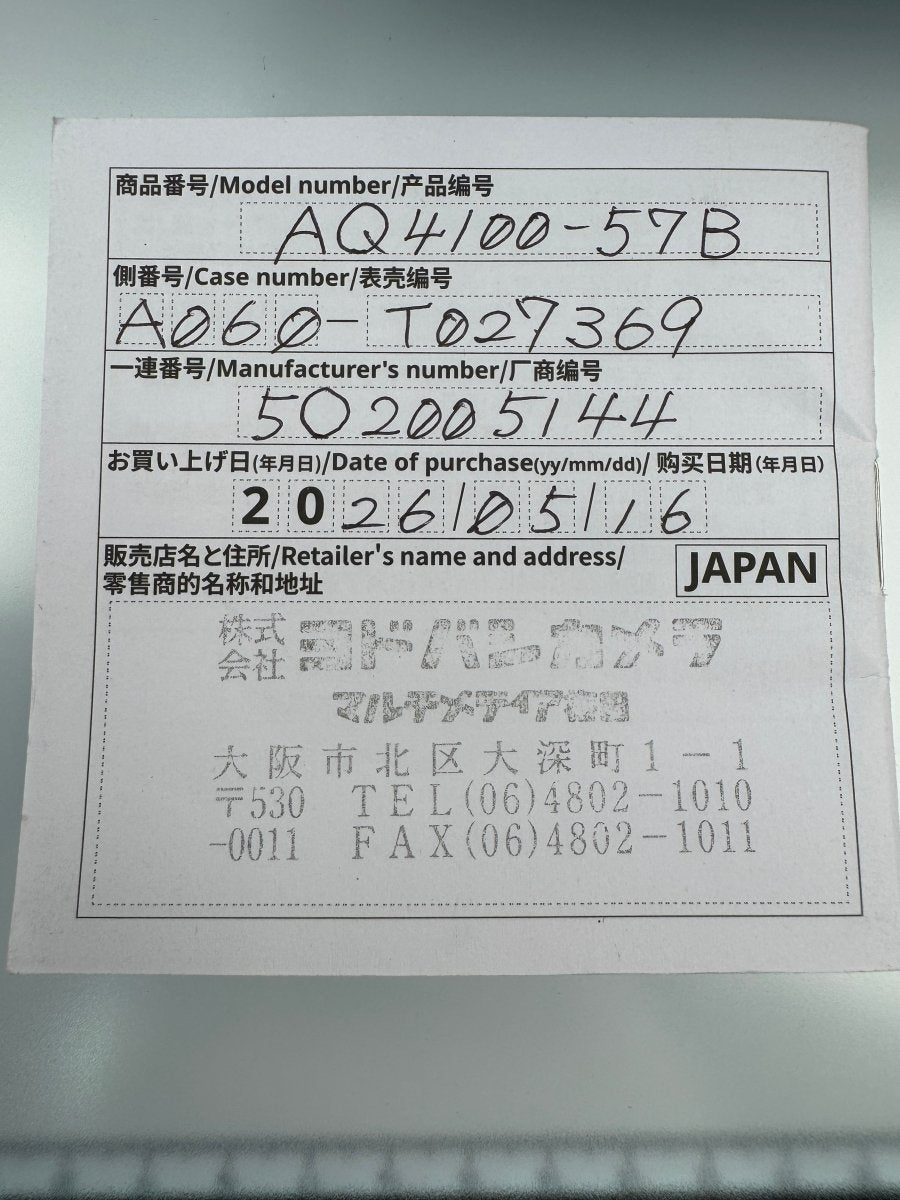 商品番号/Model number/产品编号
AQ4100-57B
側番号/Case number/表壳编号
A060-T027369
一連番号/Manufacturer's number/厂商编号
502005144
お買い上げ日(年月日)/Date of purchase(yy/mm/dd)/ 购买日期(年月日)
2026/05/16
販売店名と住所/Retailer's name and address/
零售商的名称和地址
JAPAN
株式会社 ヨドバシカメラ
マルチメディア梅田
大阪市北区大深町1-1
〒530 TEL(06)4802-1010
-0011 FAX(06)4802-1011